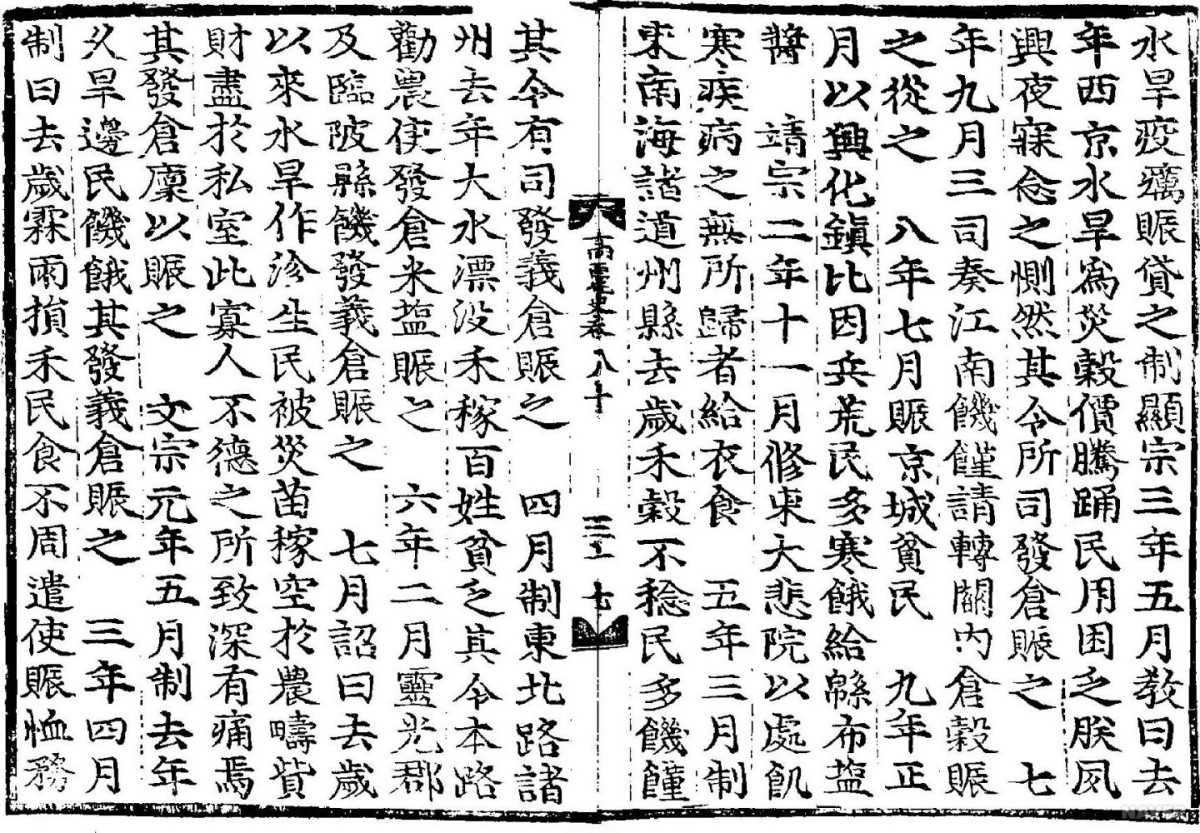 水旱疫癘賑貸之制顯宗三年五月敎曰去
年西京水旱爲災穀價騰踊民用困乏朕夙
興夜寐念之惻然其令所司發倉賑之　七
年九月三司奏江南饑饉請轉關內倉穀賑
之從之　八年七月賑京城貧民　九年正
月以興化鎭比因兵荒民多寒餓給緜布塩
醬　靖宗二年十一月修東大悲院以處飢
寒疾病之無所歸者給衣食　五年三月制
東南海諸道州縣去歲禾穀不稔民多饑饉
高麗史卷八十　三十七
其令有司發義倉賑之　四月制東北路諸
州去年大水漂沒禾稼百姓貧乏其令本路
勸農使發倉米塩賑之　六年二月靈光郡
及臨陂縣饑發義倉賑之　七月詔曰去歲
以來水旱作沴生民被災苗稼空於農疇貲
財盡於私室此寡人不德之所致深有痛焉
其發倉廩以賑之　文宗元年五月制去年
久旱邊民饑餓其發義倉賑之　三年四月
制曰去歲霖雨損禾民食不周遣使賑恤務
NAVER